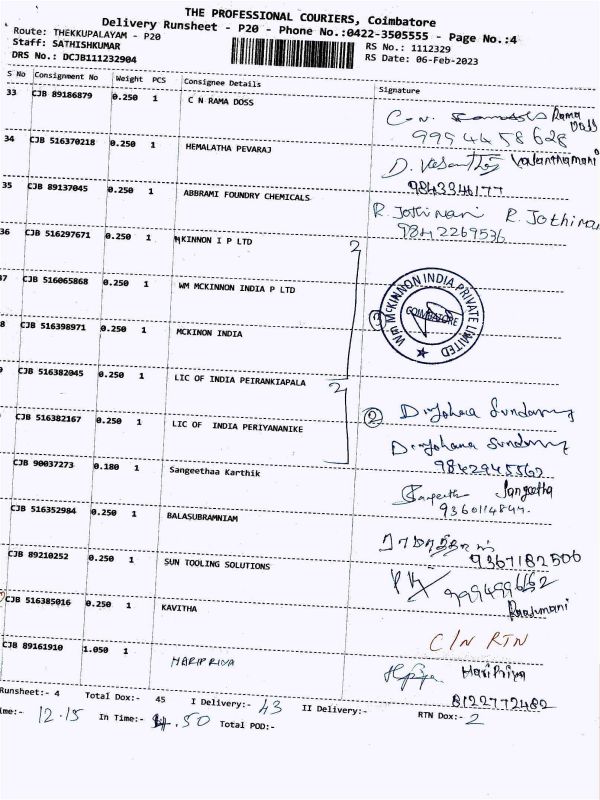 THE PROFESSIONAL COURIERS, Coimbatore
Delivery Runsheet - P20 - Phone No.:0422-3505555 - Page No.:4
Route: THEKKUPALAYAM - P20
RS No.: 1112329
Staff: SATHISHKUMAR
RS Date: 06-Feb-2023
DRS No.: DCJB111232904
S No Consignment No Weight PCS Consignee Details Signature
33 CJB 89186879 0.250 1 C N RAMA DOSS C.N. Rama Doss
9994458628
34 CJB 516370218 0.250 1 HEMALATHA PEVARAJ D. Vasanthamani
9843346177
35 CJB 89137045 0.250 1 ABBRAMI FOUNDRY CHEMICALS R. Jothimani R. Jothimani
9842269536
36 CJB 516297671 0.250 1 MKINNON I P LTD 2
37 CJB 516065868 0.250 1 WM MCKINNON INDIA P LTD
WM MCKINNON INDIA PRIVATE LIMITED
COIMBATORE
8 CJB 516398971 0.250 1 MCKINON INDIA
CJB 516382045 0.250 1 LIC OF INDIA PEIRANKIAPALA 2
CJB 516382167 0.250 1 LIC OF INDIA PERIYANANIKE 2
9842945562
CJB 90037273 0.180 1 Sangeethaa Karthik Sangeetha
CJB 516352984 0.250 1 BALASUBRAMNIAM
9367182506
CJB 89210252 0.250 1 SUN TOOLING SOLUTIONS
CJB 516385016 0.250 1 KAVITHA C/N RTN
CJB 89161910 1.050 1 HARIPRIYA Haripriya
8122772482
Runsheet:- 4 Total Dox:- 45 I Delivery:- 43 II Delivery:- RTN Dox:- 2
ime:- 12.15 In Time:- 4.50 Total POD:-